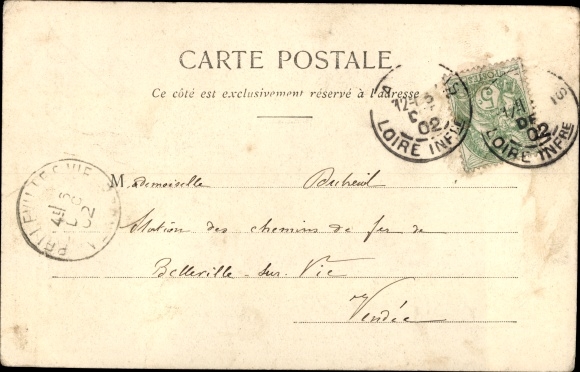 CARTE POSTALE
Ce côté est exclusivement réservé à l'adresse
LOIRE INFRE
02
LOIRE INFRE
02
5
Mademoiselle Dutreuil
Station des chemins de fer de
Belleville-sur-Vie
Vendée
BELLEVILLE S VIE
02